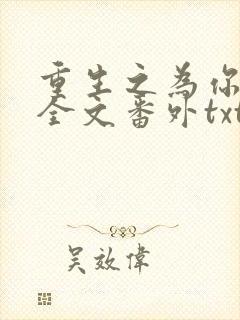 重生之為你
全文番外txt
吴效偉